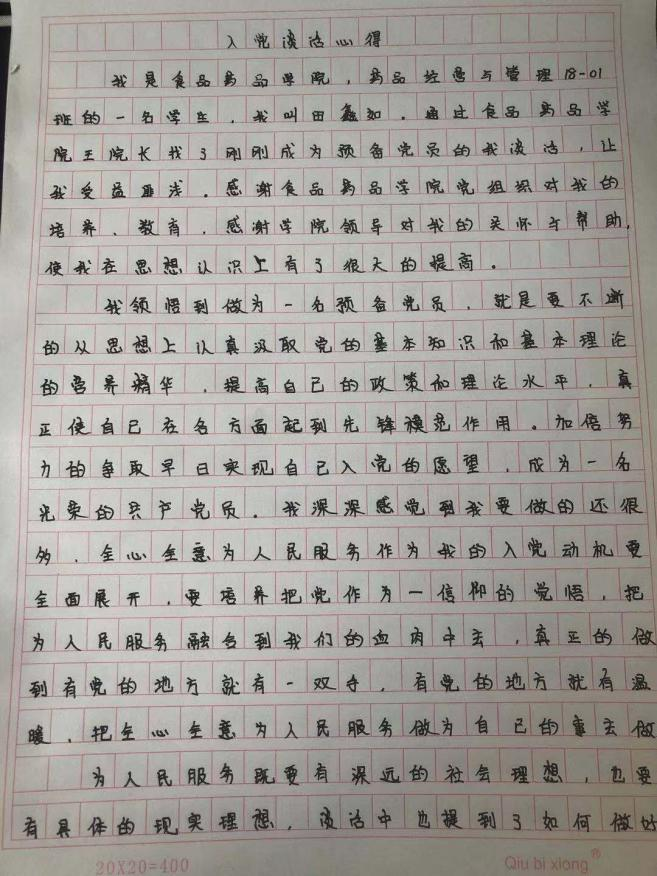 入党谈话心得
我是食品药品学院，药品经营与管理18-01
班的一名学生，我叫田鑫如。通过食品药品学
院王院长找了刚刚成为预备党员的我谈话，让
我受益匪浅。感谢食品药品学院党组织对我的
培养、教育，感谢学院领导对我的关怀与帮助，
使我在思想认识上有了很大的提高。
我领悟到做为一名预备党员，就是要不断
的从思想上认真汲取党的基本知识和基本理论
的营养精华，提高自己的政策和理论水平，真
正使自己在各方面起到先锋模范作用。加倍努
力的争取早日实现自己入党的愿望，成为一名
光荣的共产党员。我深深感觉到我要做的还很
多，全心全意为人民服务作为我的入党动机要
全面展开，要培养把党作为一信仰的觉悟，把
为人民服务融合到我们的血肉中去，真正的做
到有党的地方就有一双手，有党的地方就有温
暖，把全心全意为人民服务做为自己的事去做
为人民服务既要有深远的社会理想，也要
有具体的现实理想，谈话中也提到了如何做好
20X20=400
Qiu bi xiong®